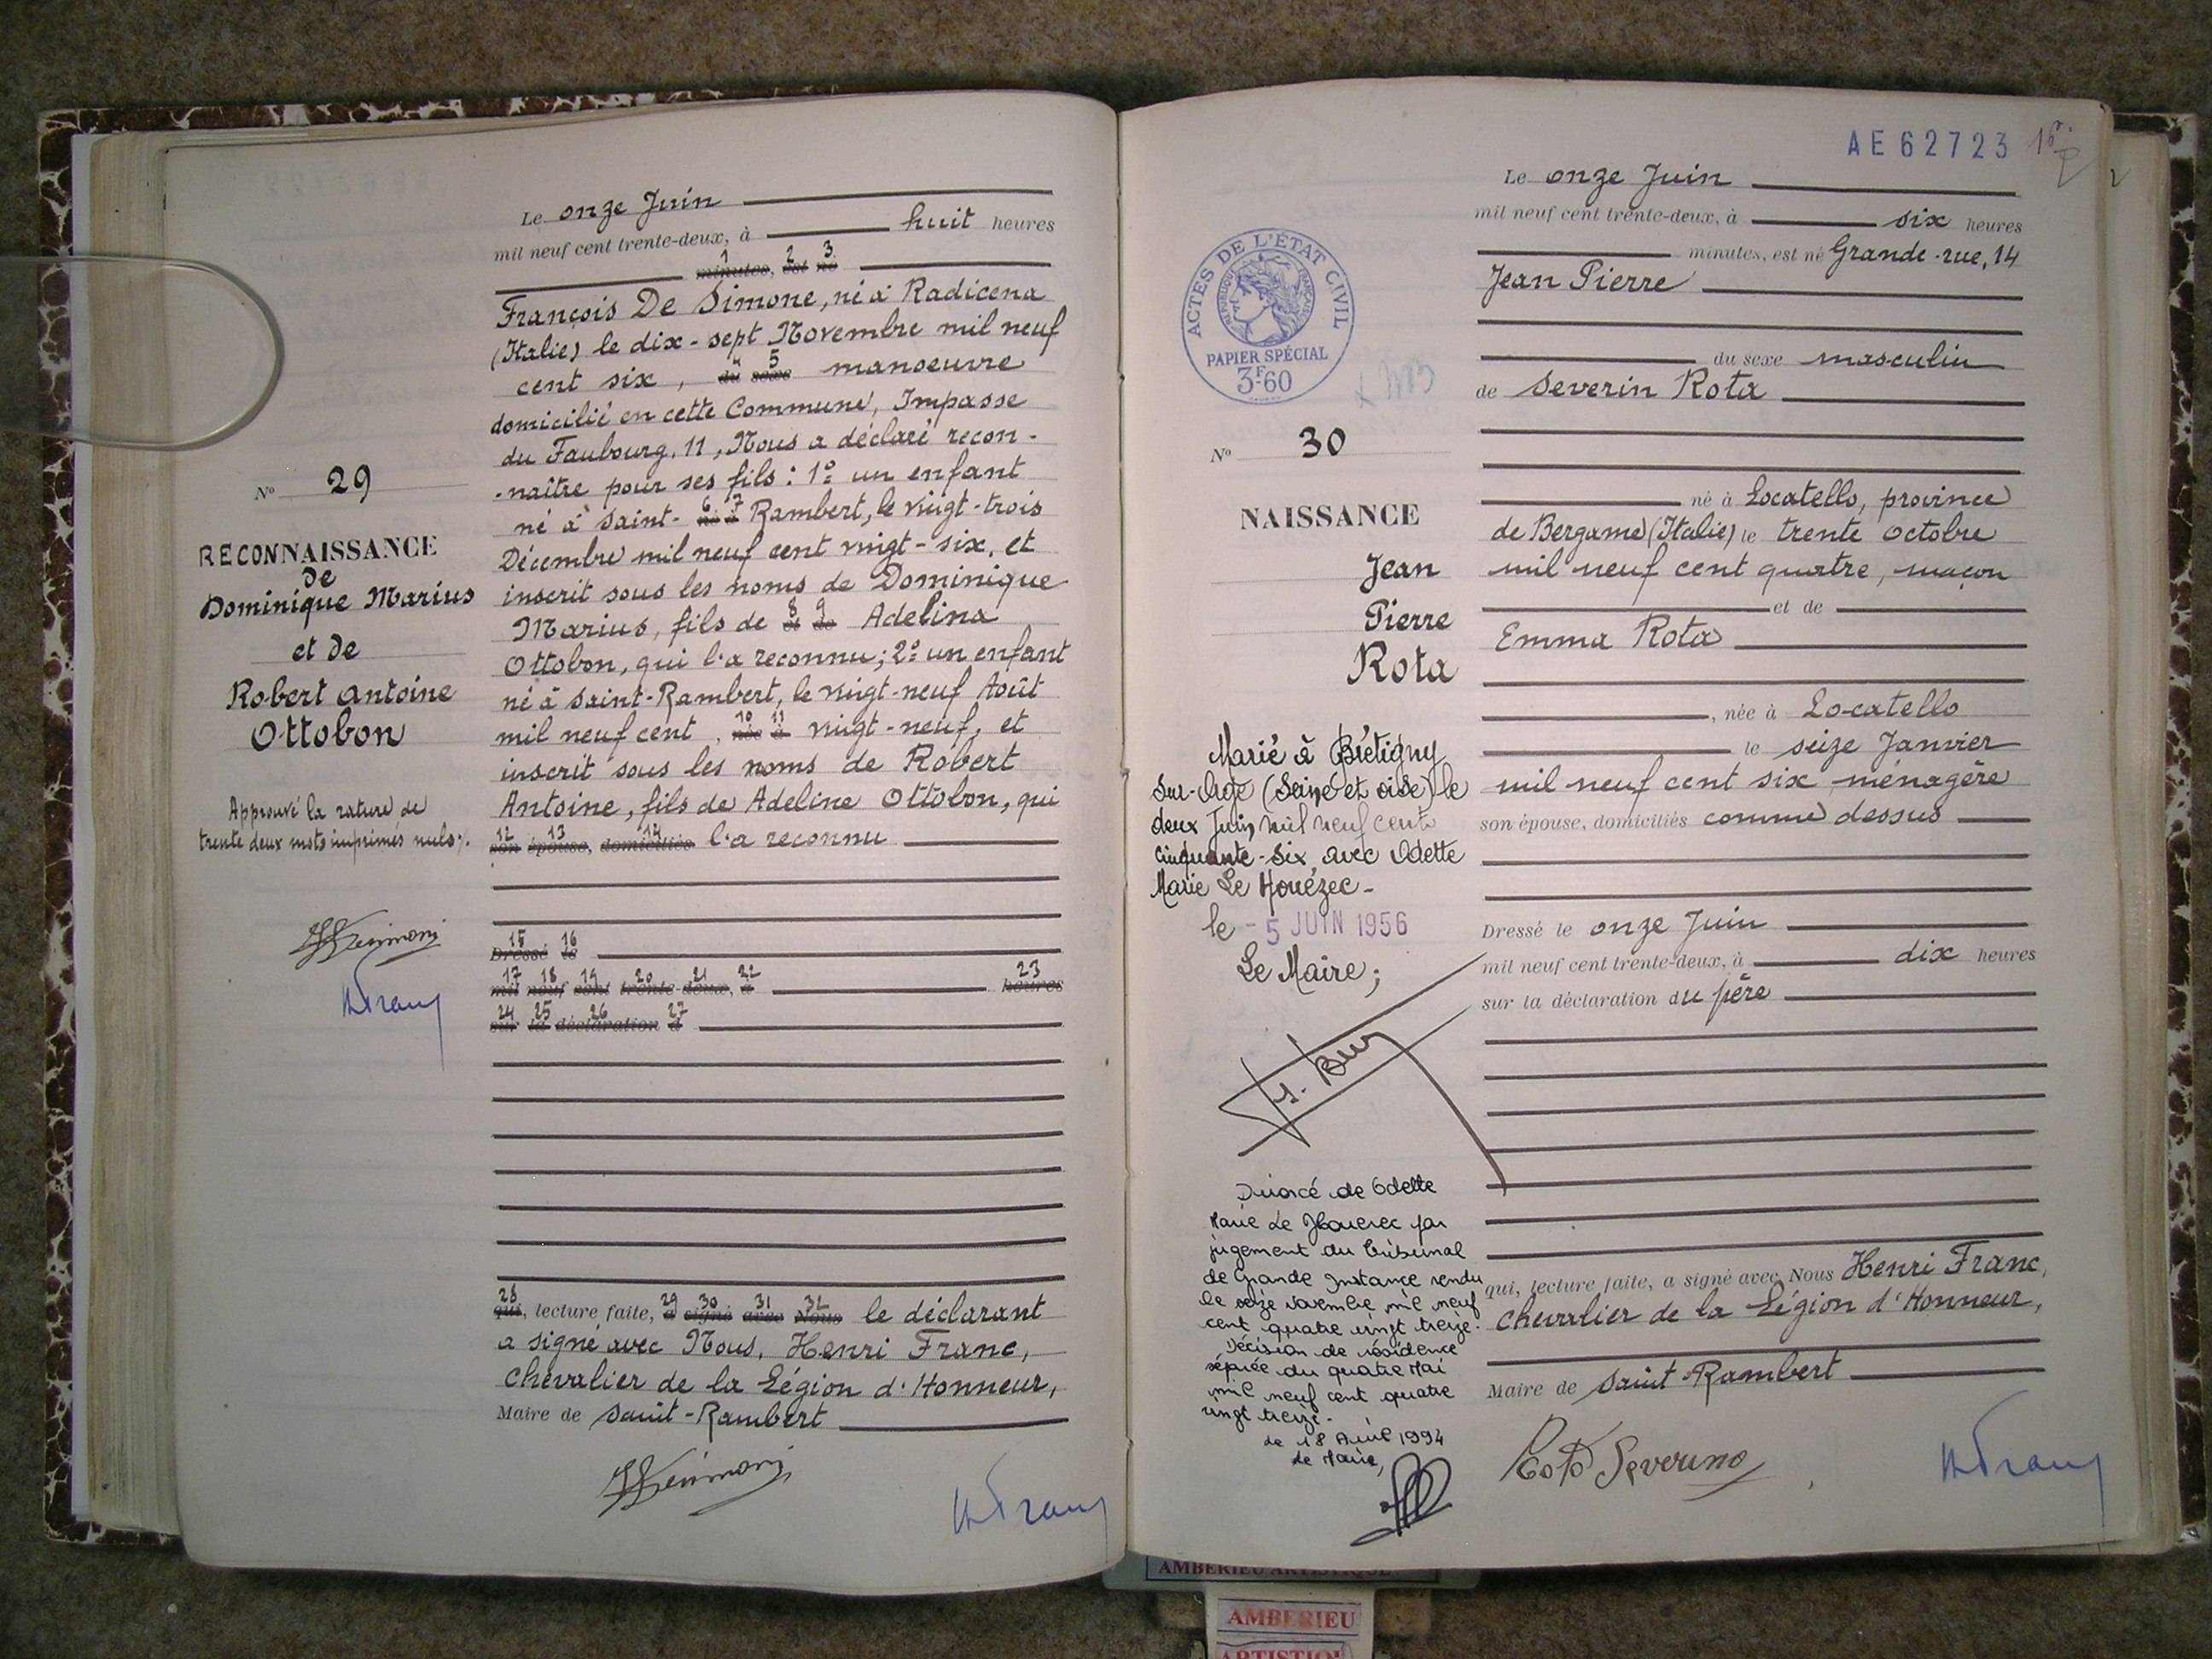 Le onze Juin
mil neuf cent trente-deux, à huit heures
1 2 3
minutes, est né
François De Simone, né à Radicena
(Italie) le dix-sept Novembre mil neuf
cent six, du sexe manoeuvre
domicilié en cette Commune, Impasse
du Faubourg, 11, Nous a déclaré recon-
-naître pour ses fils : 1° un enfant
né à Saint- né à Rambert, le vingt-trois
Décembre mil neuf cent vingt-six, et
inscrit sous les noms de Dominique
Marius, fils de et de Adelina
Ottobon, qui l'a reconnu; 2° un enfant
né à Saint-Rambert, le vingt-neuf Août
mil neuf cent, née à vingt-neuf, et
inscrit sous les noms de Robert
Antoine, fils de Adeline Ottobon, qui
12 13 14
son épouse, domiciliés l'a reconnu
15 16
Dressé le
17 18 19 20 21 22 23
mil neuf cent trente-deux, à heures
24 25 26 27
sur la déclaration d
28 29 30 31 32
qui, lecture faite, a signé avec Nous le déclarant
a signé avec Nous, Henri Franc,
Chevalier de la Légion d'Honneur,
Maire de Saint-Rambert
N° 29
RECONNAISSANCE
de
Dominique Marius
et de
Robert Antoine
Ottobon
Approuvé la rature de
trente deux mots imprimés nuls.
HFranc
HFranc
AE 62723
Le onze Juin
mil neuf cent trente-deux, à six heures
minutes, est né Grande-rue, 14
Jean Pierre
du sexe masculin
de Severin Rota
né à Locatello, province
de Bergame (Italie) le trente octobre
mil neuf cent quatre, maçon
et de
Emma Rota
, née à Locatello
le seize Janvier
mil neuf cent six ménagère
son épouse, domiciliés comme dessus
Dressé le onze Juin
mil neuf cent trente-deux, à dix heures
sur la déclaration du père
qui, lecture faite, a signé avec Nous Henri Franc,
chevalier de la Légion d'Honneur,
Maire de Saint-Rambert
Rota Severino
HFranc
ACTES DE L'ÉTAT CIVIL
RÉPUBLIQUE FRANÇAISE
PAPIER SPÉCIAL
3F60
N° 30
NAISSANCE
Jean
Pierre
Rota
Marié à Brétigny
Sur-Orge (Seine et oise) le
deux Juin mil neuf cent
cinquante-six avec Odette
Marie Le Houézec-
le - 5 JUIN 1956
Le Maire;
Divorcé de Odette
Marie Le Houezec par
jugement du tribunal
de Grande Instance rendu
le seize novembre mil neuf
cent quatre vingt treize.
Décision de résidence
séparée du quatre Mai
mil neuf cent quatre
vingt treize.
Le 18 Avril 1994
Le Maire,
AMBERIEU ARTISTIQUE
AMBERIEU
ARTISTIQUE